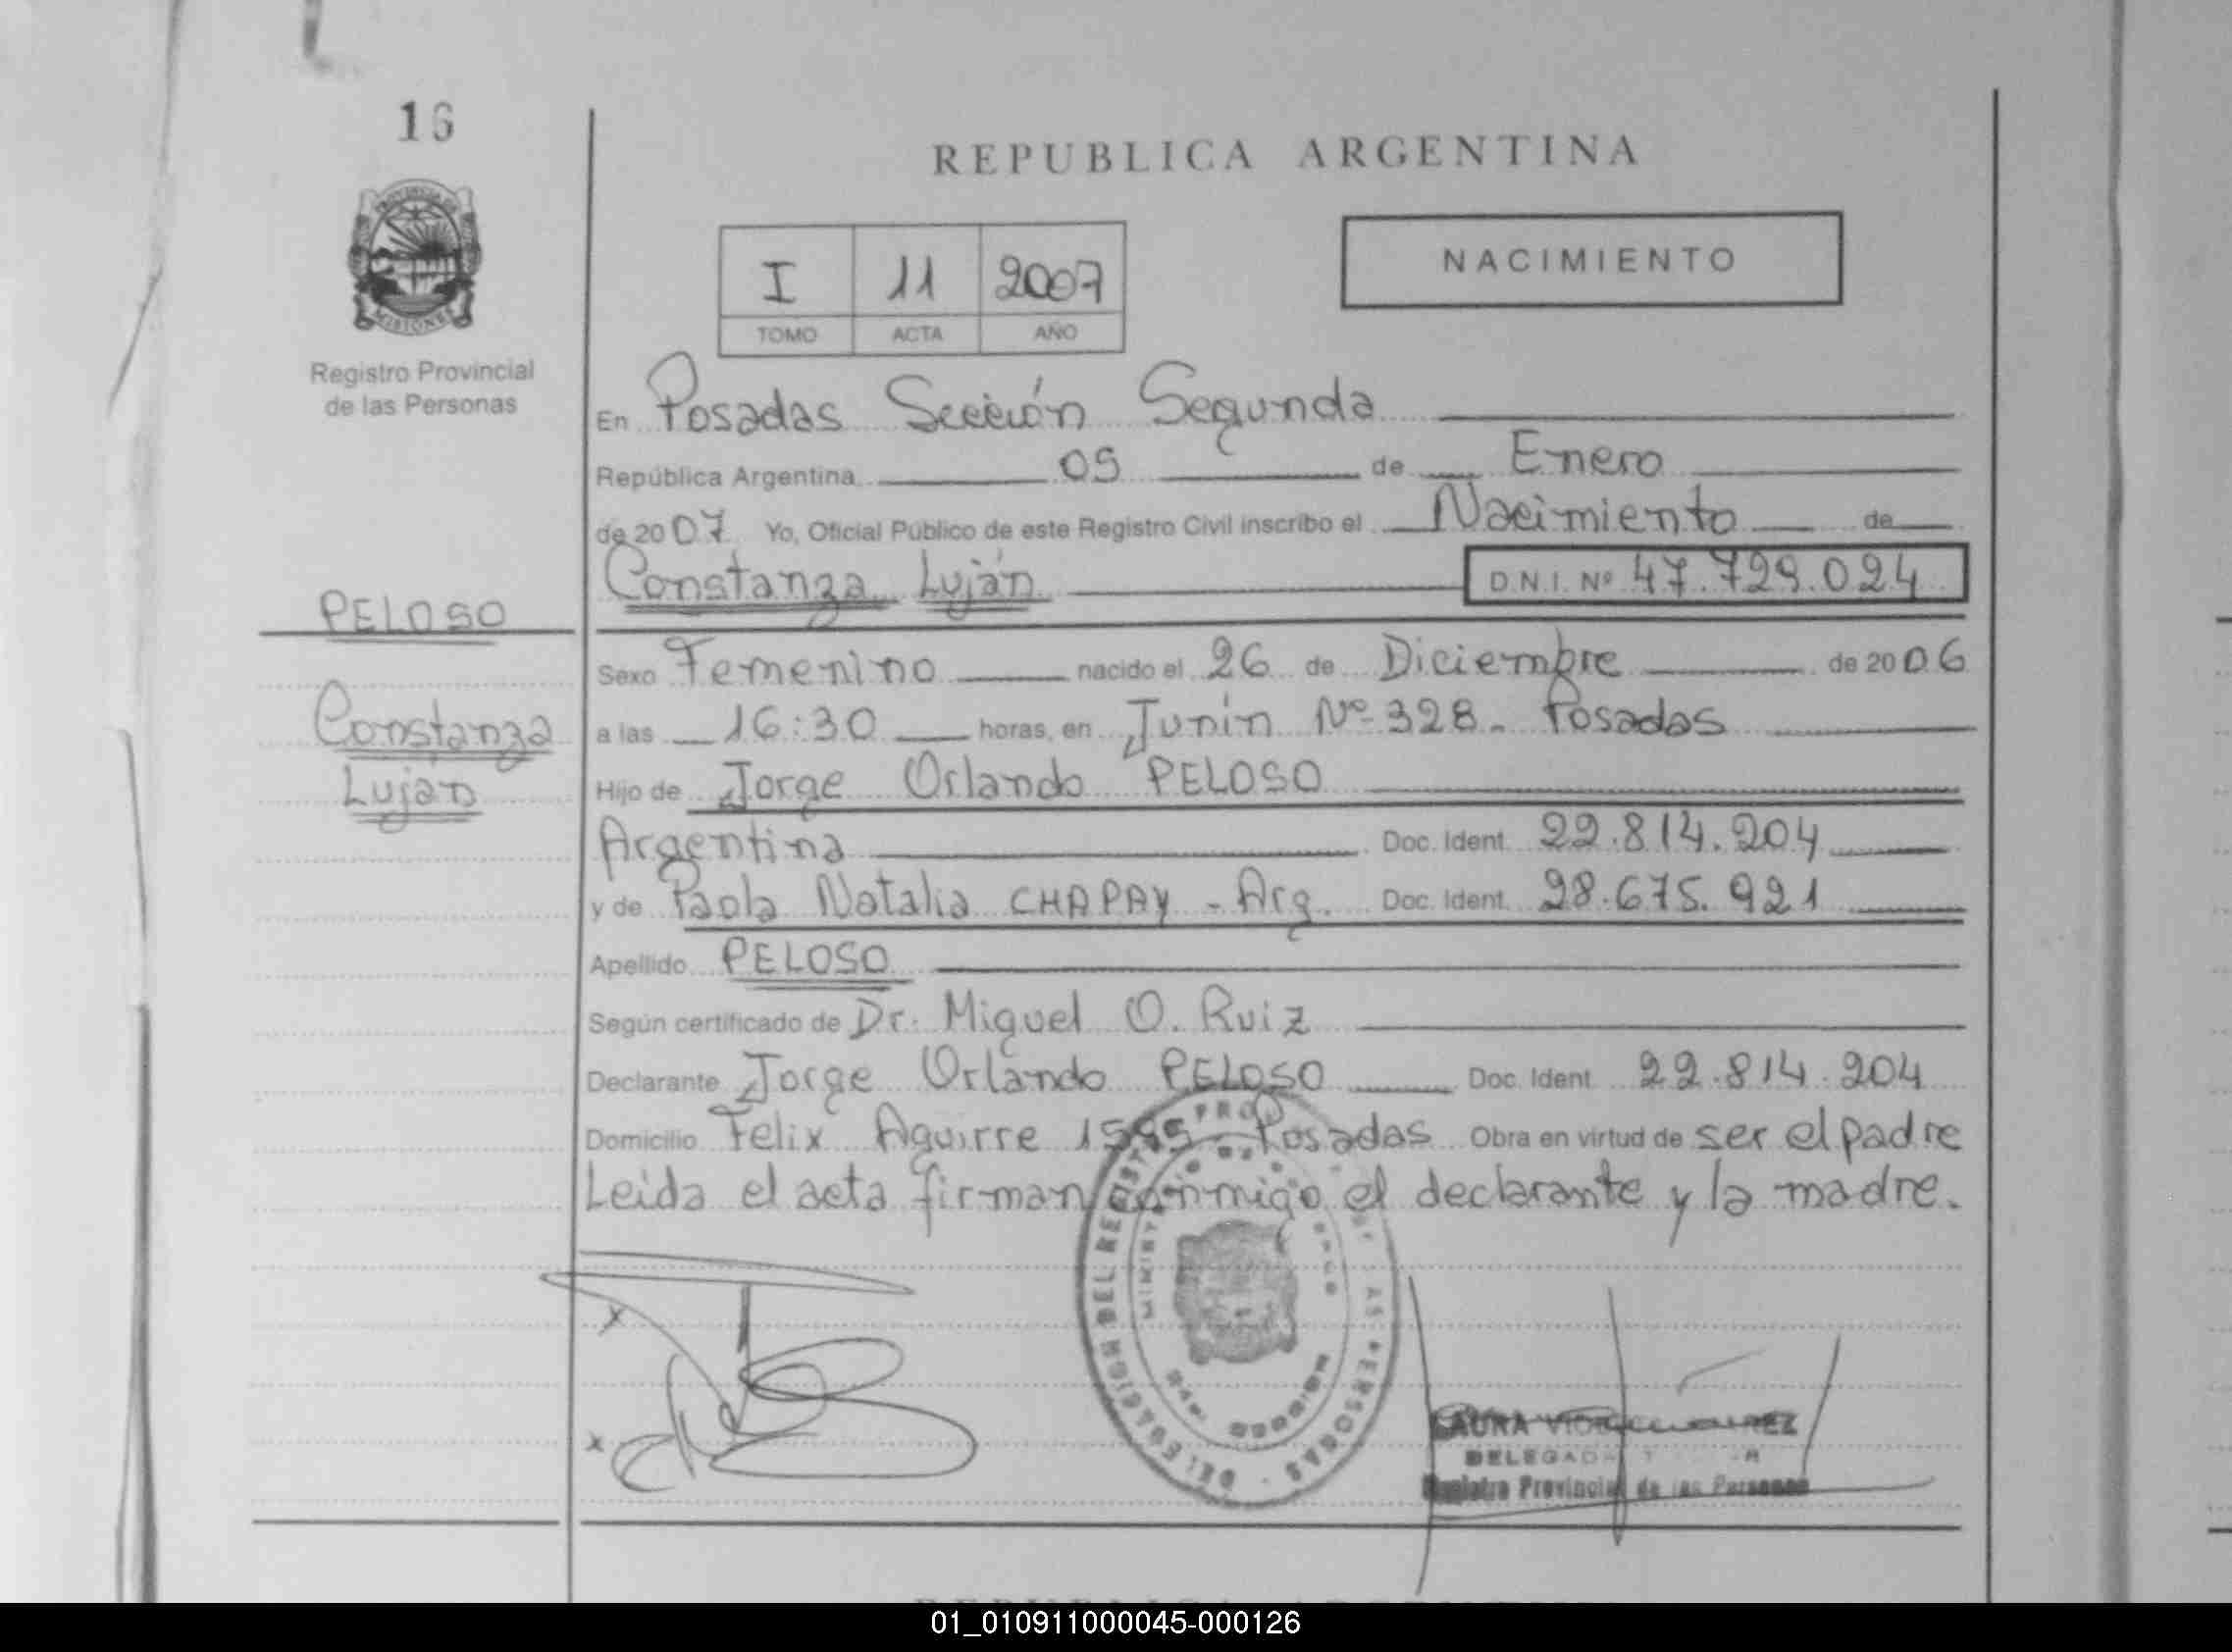 16
REPUBLICA ARGENTINA
PROVINCIA DE
MISIONES
Registro Provincial
de las Personas
I 11 2007
TOMO ACTA AÑO
NACIMIENTO
En Posadas Sección Segunda
República Argentina 09 de Enero
de 2007 Yo, Oficial Público de este Registro Civil inscribo el Nacimiento de
Constanza Luján D.N.I. Nº 47.729.024
PELOSO
Constanza
Luján
Sexo Femenino nacido el 26 de Diciembre de 2006
a las 16:30 horas, en Junín Nº 328. Posadas
Hijo de Jorge Orlando PELOSO
Argentina Doc. Ident. 22.814.204
y de Paola Natalia CHAPAY - Arg. Doc. Ident. 28.675.921
Apellido PELOSO
Según certificado de Dr. Miguel O. Ruiz
Declarante Jorge Orlando PELOSO Doc. Ident 22.814.204
Domicilio Felix Aguirre Posadas Obra en virtud de ser el padre
Leida el acta firman conmigo el declarante y la madre.
x
x
DELEGACION DEL REGISTRO PERSONAS
LAURA
Registro Provincial de las Personas
01_010911000045-000126